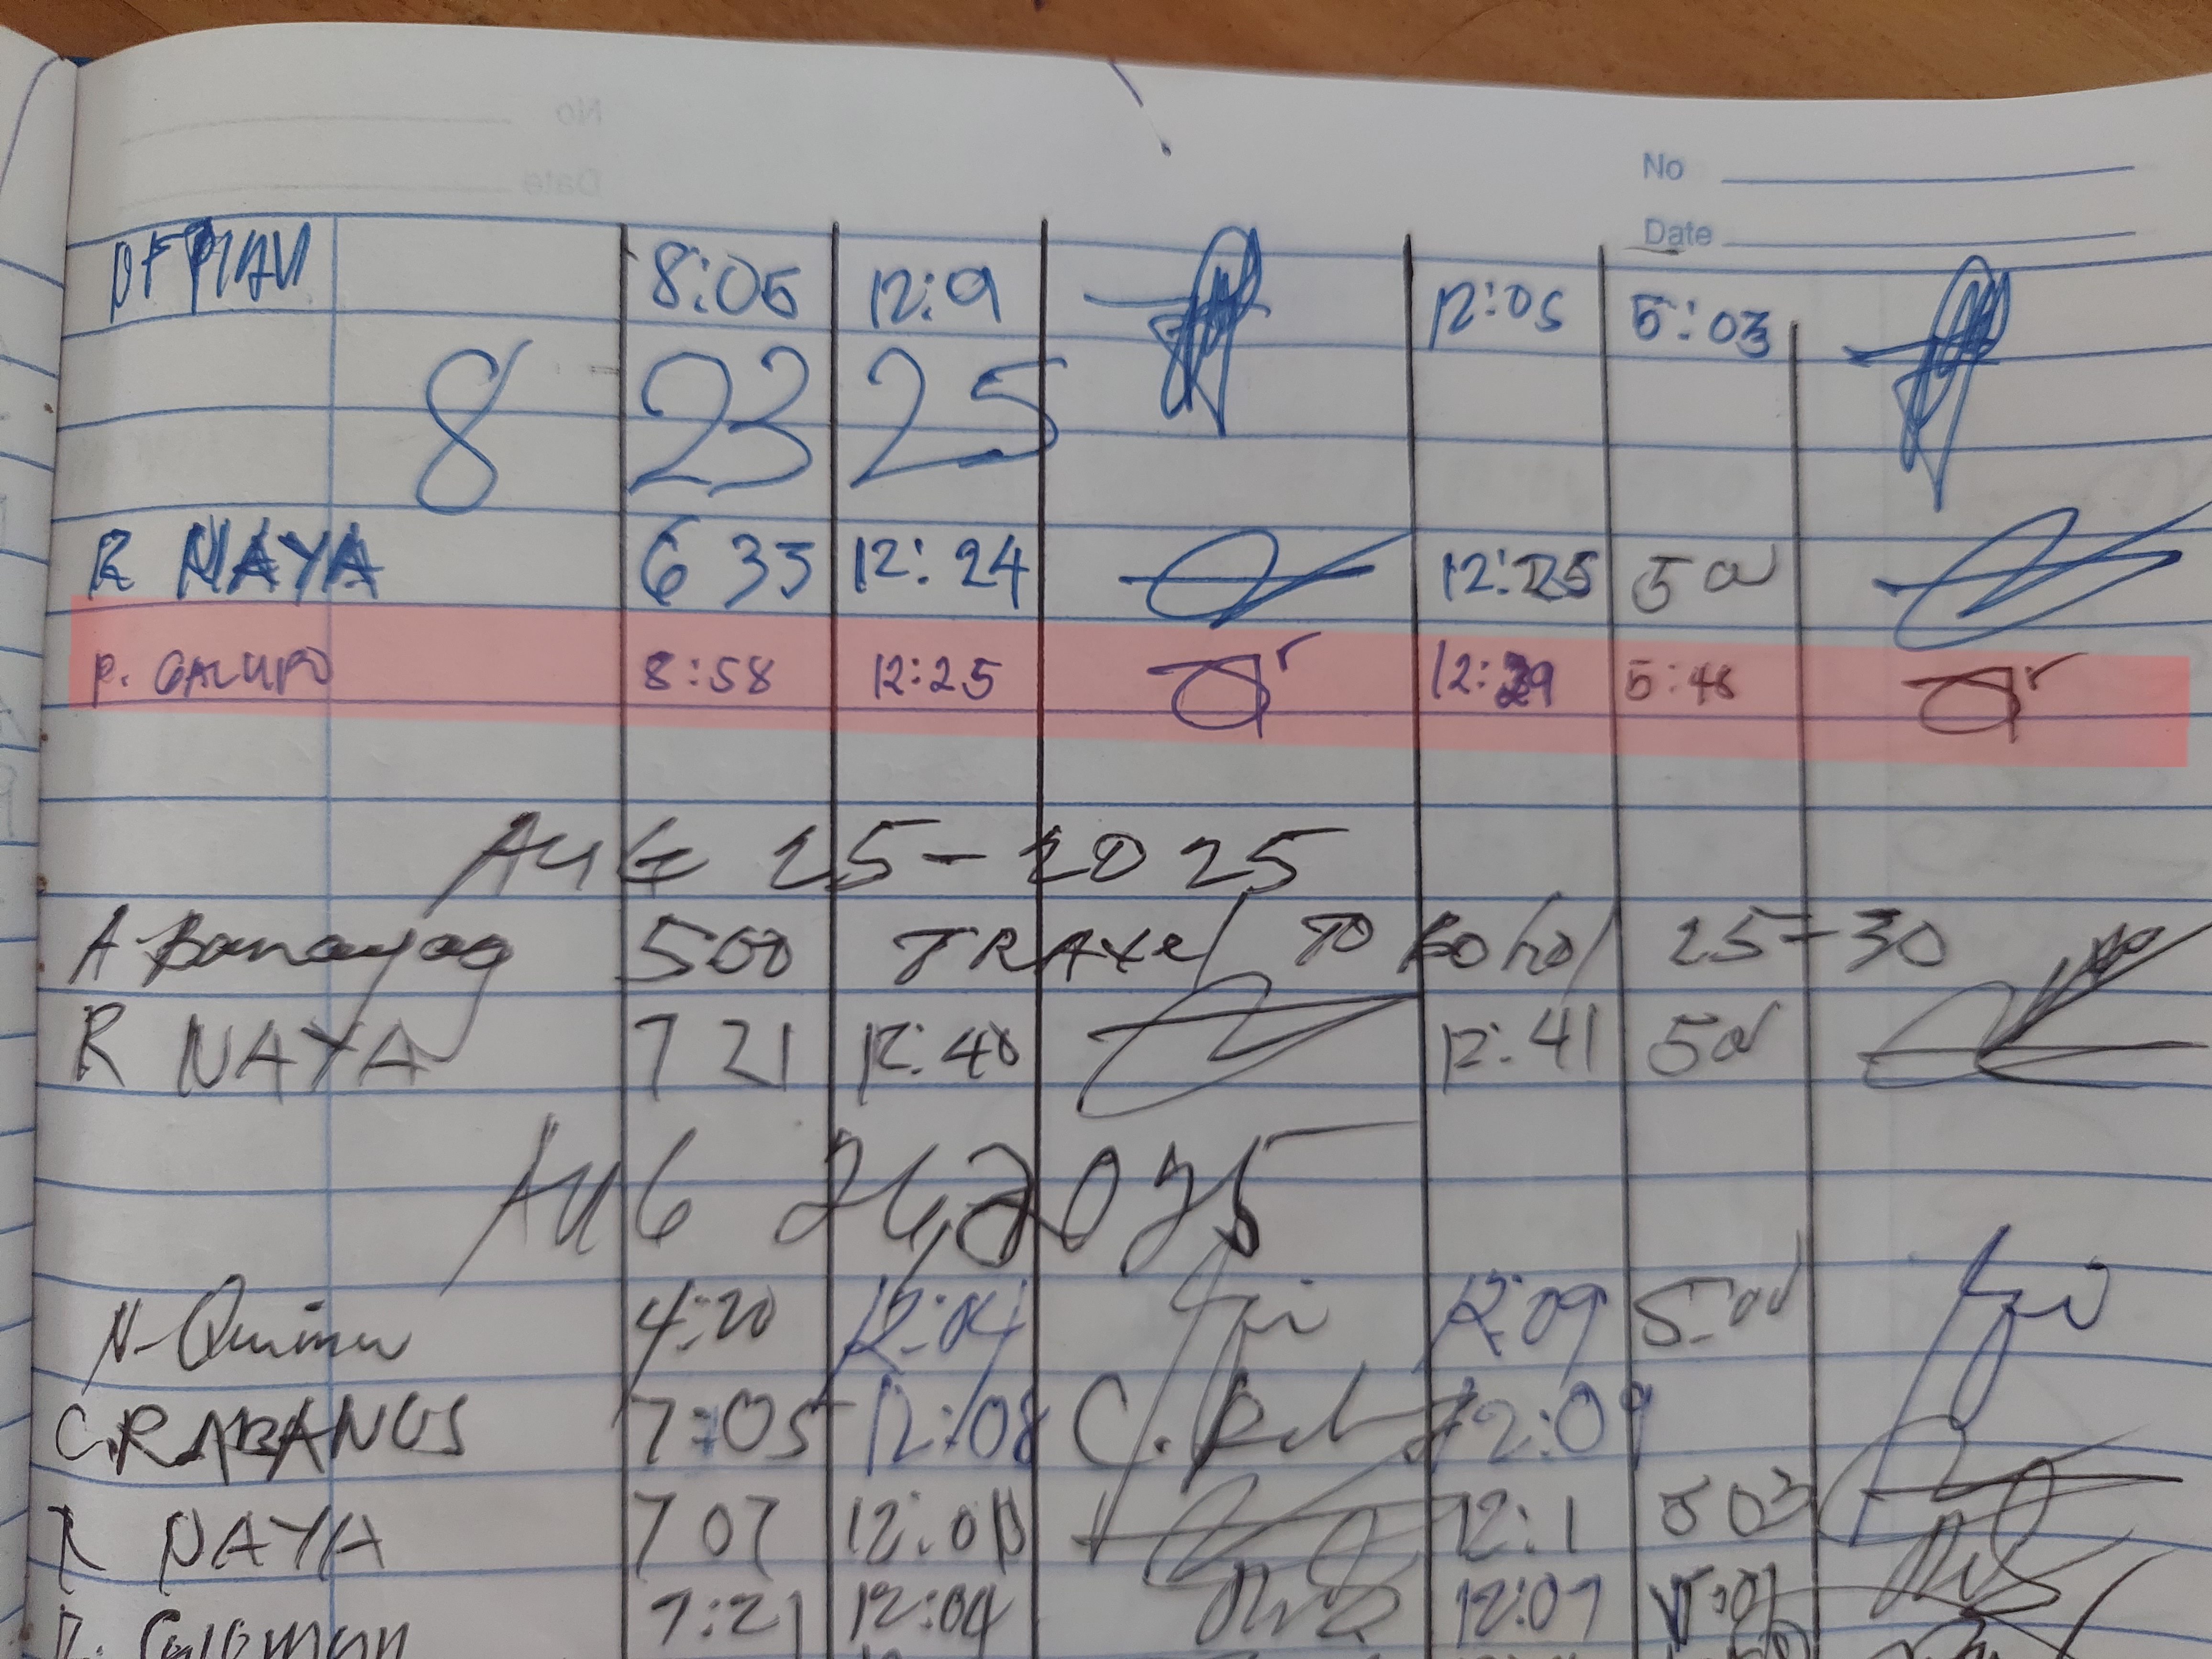 No
Date
8:05 12:9 12:05 5:03
8 23 25
R NAYA 6 33 12:24 12:25 500
P. GALUPO 8:58 12:25 12:39 5:48
AUG 25-2025
A Banayag 500 TRAVel TO Bohol 25-30
R NAYA 7 21 12:40 12:41 500
AUG 26, 2025
N-Quimu 4:20 12:04 12:09 5-00
C. RABANUS 7:05 12:08 12:09
R NAYA 7 07 12:1 503
7:21 12:04 12:07